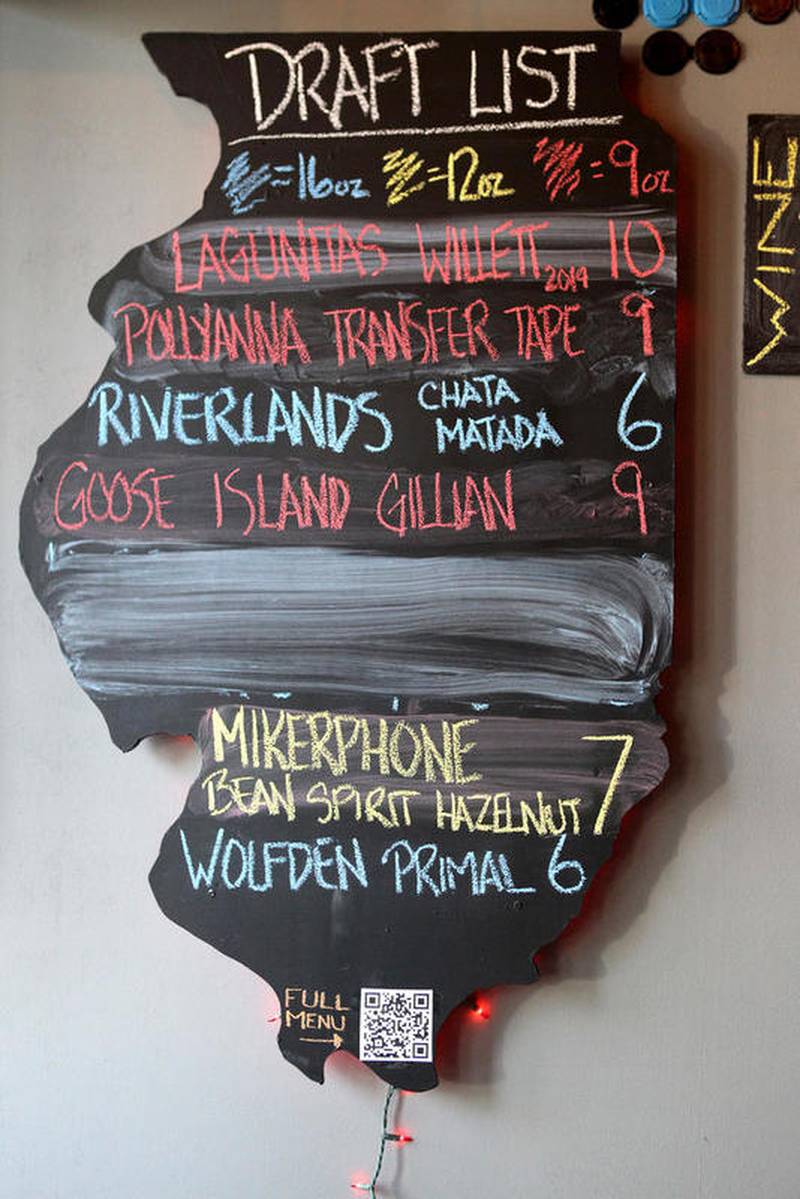 DRAFT LIST
=16oz =12oz =9oz
LAGUNITAS WILLETT 2019 10
POLLYANNA TRANSFER TAPE 9
RIVERLANDS CHATA MATADA 6
GOOSE ISLAND GILLIAN 9
MIKERPHONE
BEAN SPIRIT HAZELNUT 7
WOLFDEN PRIMAL 6
FULL
MENU
WINE